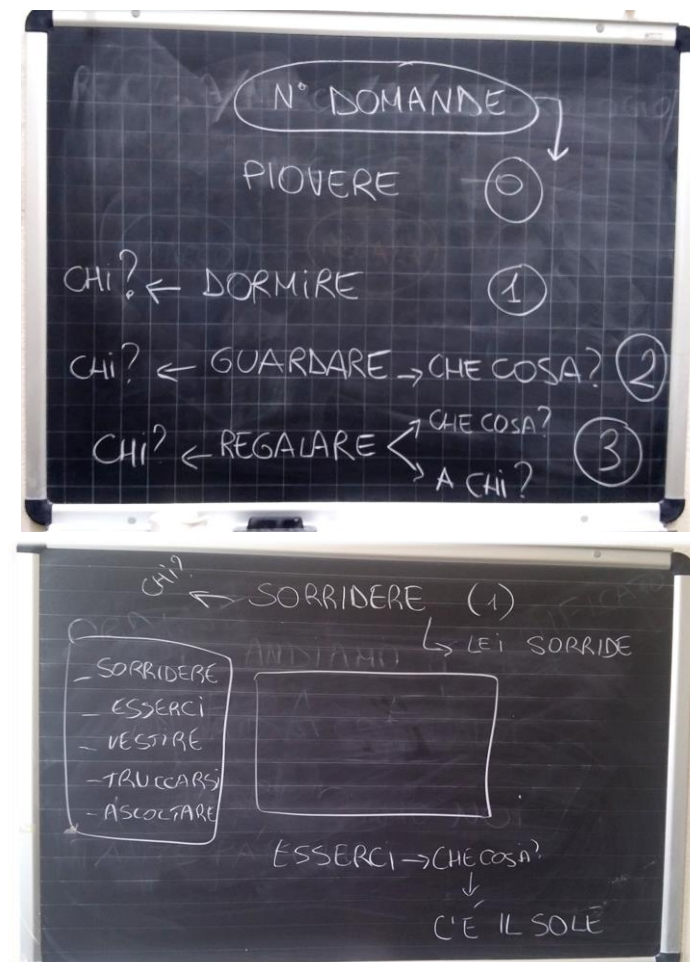 N° DOMANDE
PIOVERE 0
CHI? ← DORMIRE 1
CHI? ← GUARDARE → CHE COSA? 2
CHI? ← REGALARE CHE COSA? 3
A CHI?
CHI? ← SORRIDERE (1)
LEI SORRIDE
ANDIAMO
- SORRIDERE
- ESSERCI
- VESTIRE
- TRUCCARSI
- ASCOLTARE
ESSERCI → CHE COSA?
↓
C'È IL SOLE